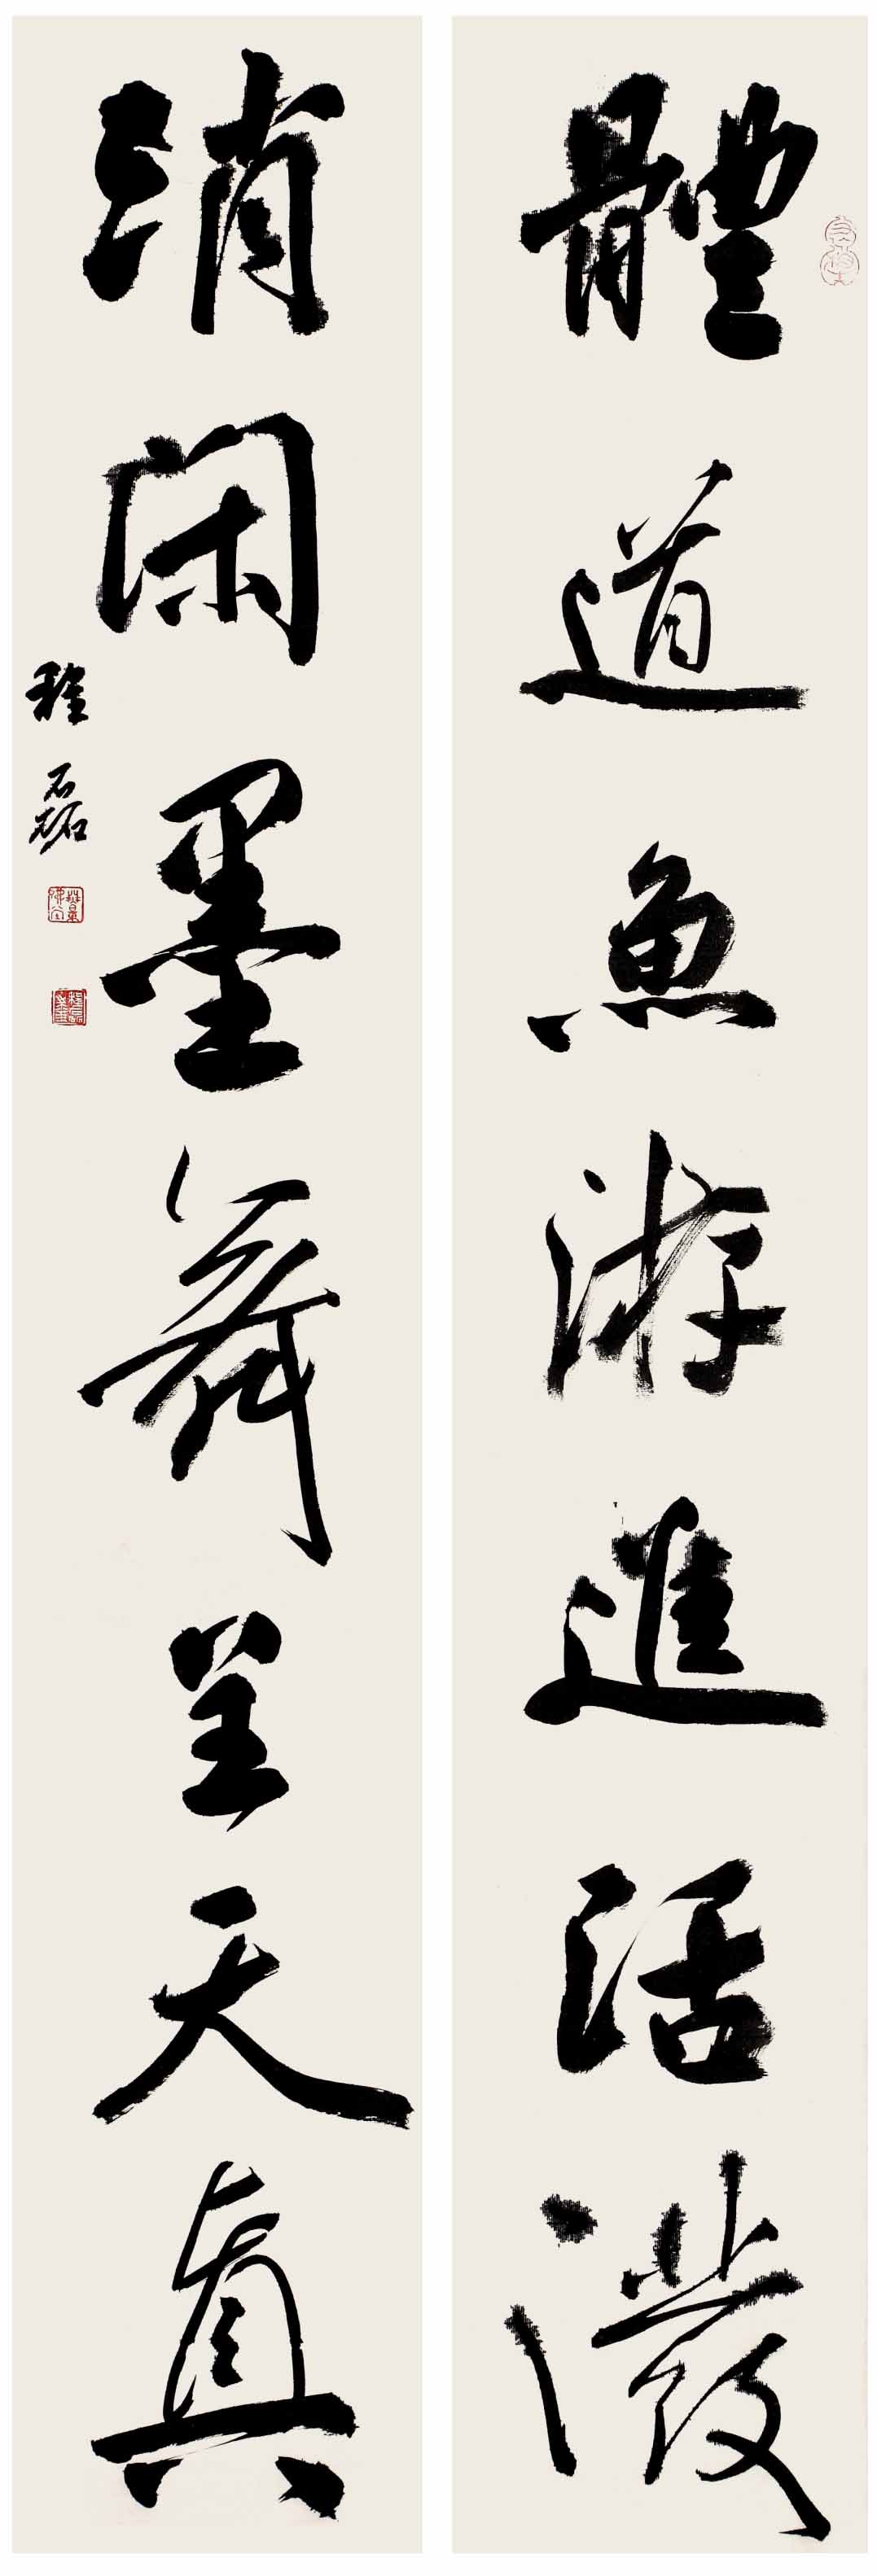 體道魚游進活潑
消閑墨舞呈天真
程磊